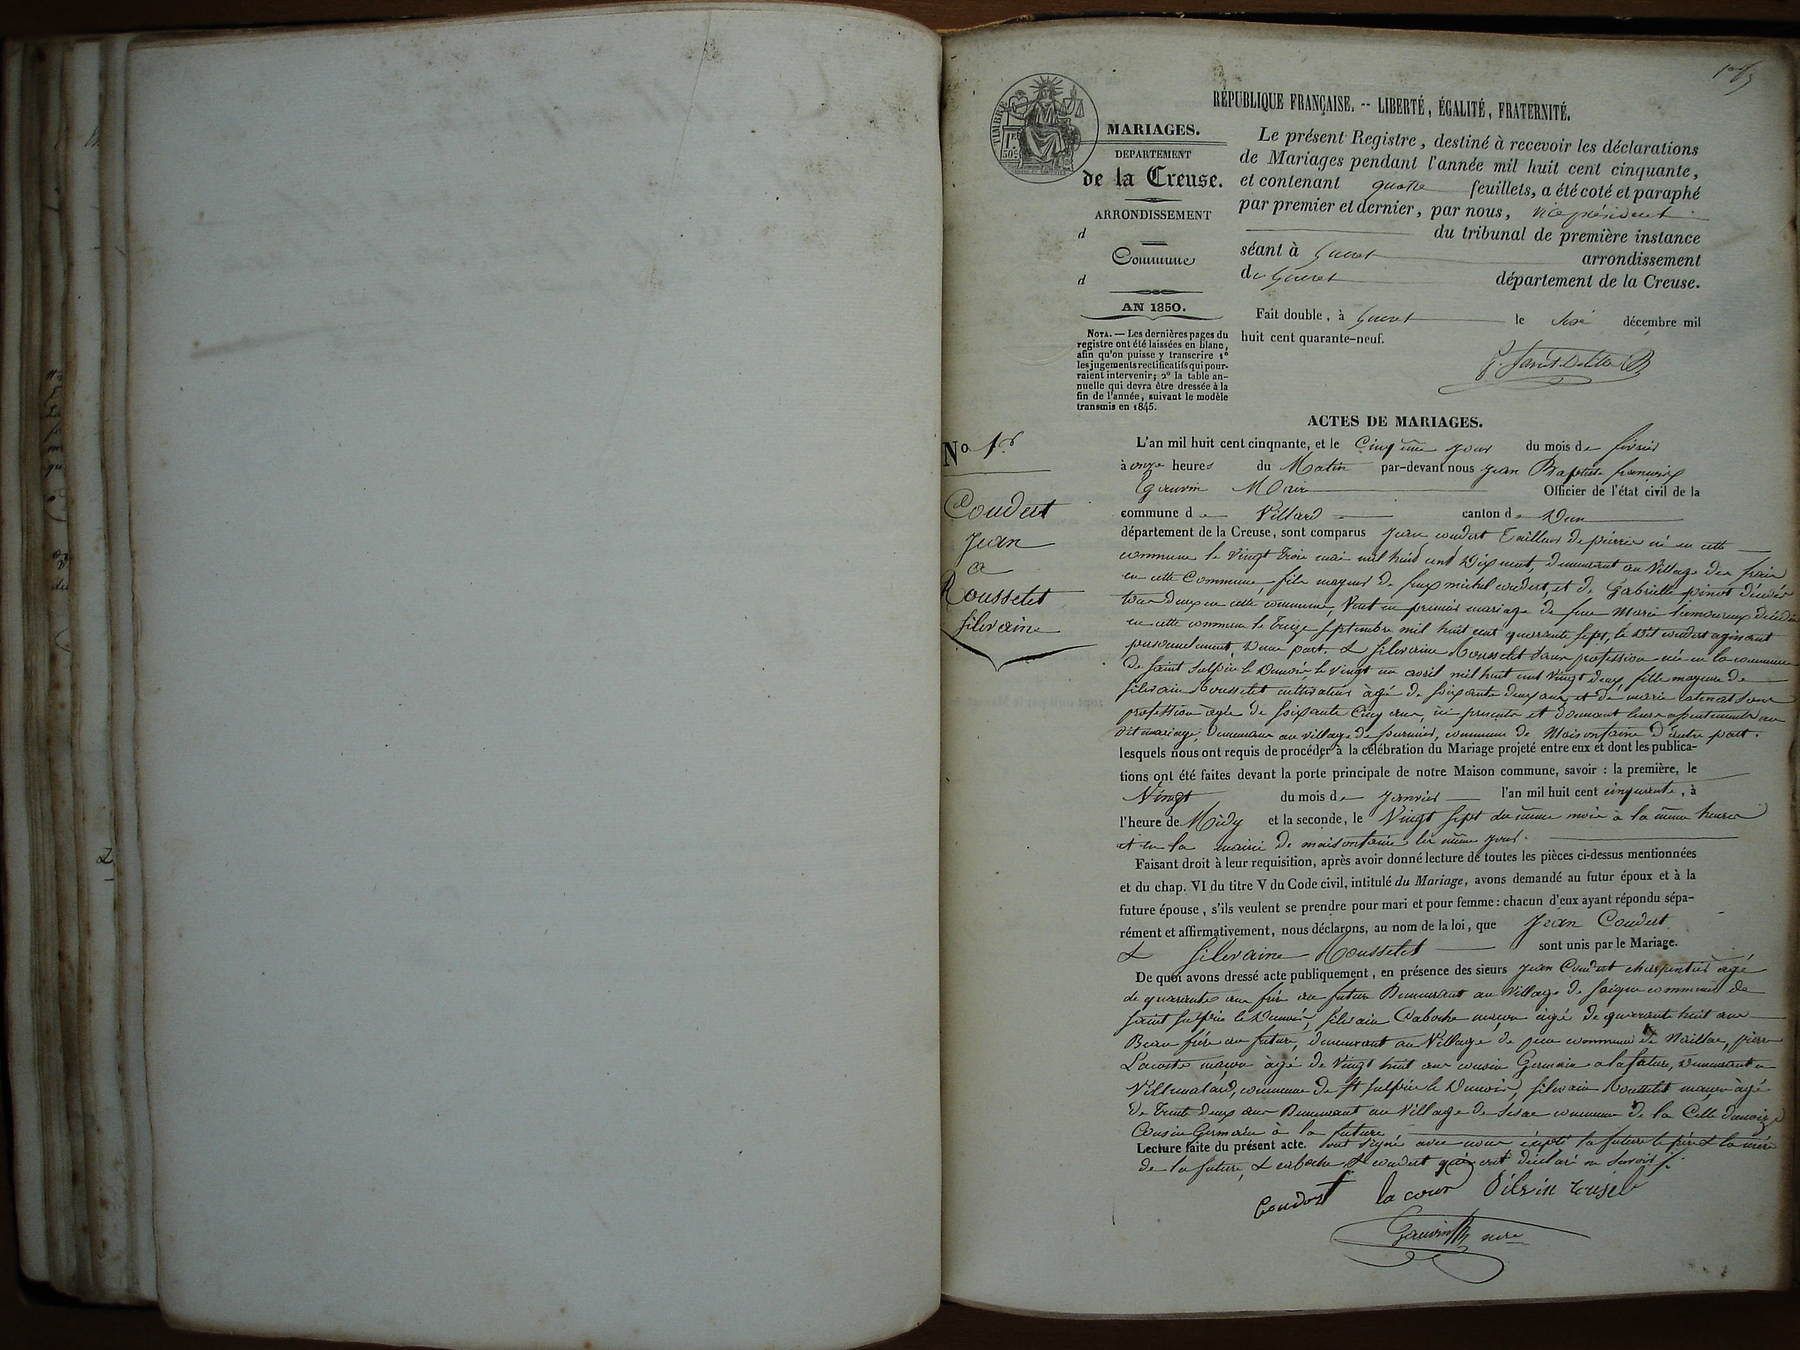 RÉPUBLIQUE FRANÇAISE. -- LIBERTÉ, ÉGALITÉ, FRATERNITÉ.
TIMBRE
1.F
50.c
MARIAGES.
DEPARTEMENT
de la Creuse.
ARRONDISSEMENT
d
Commune
d
AN 1850.
NOTA. — Les dernières pages du
registre ont été laissées en blanc,
afin qu'on puisse y transcrire 1°
les jugements rectificatifs qui pour-
raient intervenir; 2° la table an-
nuelle qui devra être dressée à la
fin de l'année, suivant le modèle
transmis en 1845.
Le présent Registre, destiné à recevoir les déclarations
de Mariages pendant l'année mil huit cent cinquante,
et contenant quatre feuillets, a été coté et paraphé
par premier et dernier, par nous, vice président
du tribunal de première instance
séant à Gueret arrondissement
de Gueret département de la Creuse.
Fait double, à Gueret le décembre mil
huit cent quarante-neuf.
ACTES DE MARIAGES.
No 1er
Coudert
Jean
et
Rousselet
Silvaine
L'an mil huit cent cinquante, et le Cinquième jour du mois de février
à onze heures du Matin par-devant nous Jean Baptiste
Maire Officier de l'état civil de la
commune de Villard canton de Dun
département de la Creuse, sont comparus Jean coudert Tailleur de pierre né en cette
commune le vingt trois mai mil huit cent Dix neuf, demeurant au Village des
en cette Commune, fils majeur de feux michel coudert, et de Gabrielle pinot décédés
tous deux en cette commune, Veuf en premier mariage de feue Marie Lamoureux décédée
en cette commune le treize septembre mil huit cent quarante sept, le dit coudert agissant
personnellement, D'une part. & Silvaine Rousselet sans profession née en la commune
de saint Sulpice le Dunois, le vingt un avril mil huit cent vingt deux, fille majeure de
Silvain Rousselet cultivateur âgé de soixante deux ans, et de marie sans
profession âgée de soixante Cinq ans, ici présents et donnant leur consentement au
dit mariage, demeurant au village de commune de Maisonfeine D'autre part.
lesquels nous ont requis de procéder à la célébration du Mariage projeté entre eux et dont les publica-
tions ont été faites devant la porte principale de notre Maison commune, savoir : la première, le
Vingt du mois de Janvier l'an mil huit cent cinquante, à
l'heure de Midy et la seconde, le Vingt Sept du même mois à la même heure
et en la mairie de maisonfeine les même jour.
Faisant droit à leur requisition, après avoir donné lecture de toutes les pièces ci-dessus mentionnées
et du chap. VI du titre V du Code civil, intitulé du Mariage, avons demandé au futur époux et à la
future épouse, s'ils veulent se prendre pour mari et pour femme : chacun d'eux ayant répondu sépa-
rément et affirmativement, nous déclarons, au nom de la loi, que Jean Coudert
& Silvaine Rousselet sont unis par le Mariage.
De quoi avons dressé acte publiquement, en présence des sieurs Jean Coudert charpentier âgé
de quarante ans frère au futur Demeurant au Village de commune de
saint Sulpice le Dunois, Silvain Caboche maçon âgé de quarante huit ans
Beau frère au futur, demeurant au Village de commune de Naillac, pierre
maçon âgé de vingt huit ans cousin Germain a la future, demeurant a
commune de St Sulpice le Dunois, Silvain Rousselet maçon âgé
de trente deux ans Demeurant au Village de commune de la Celle dunoise
Cousin Germain à la future
Lecture faite du présent acte. ont signé avec nous excepté la future le père & la mère
de la future, & caboche & coudert qui ont déclaré ne savoir /.
Coudert la cour Silvin